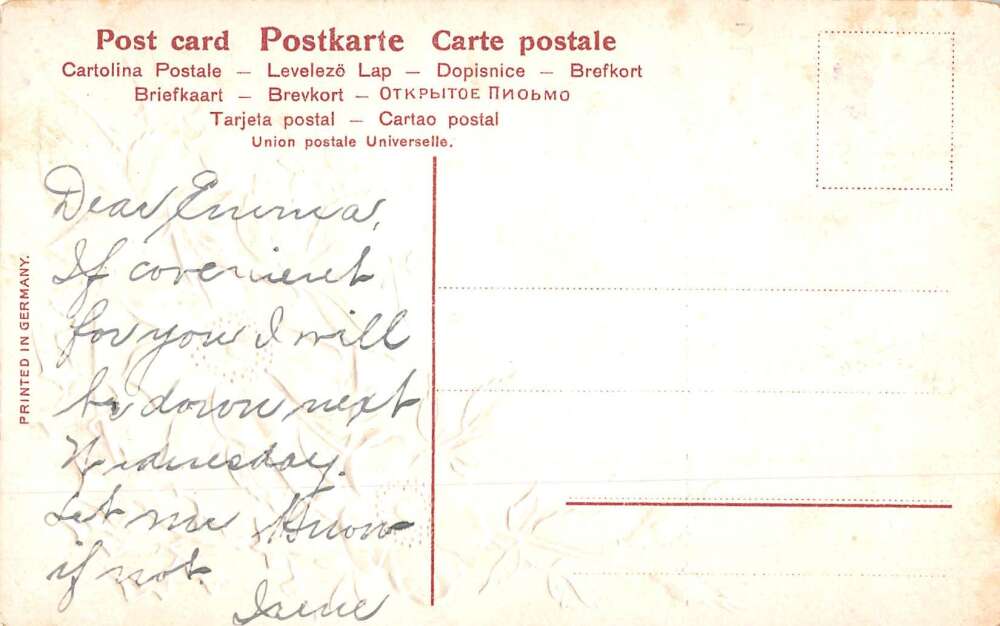 Post card Postkarte Carte postale
Cartolina Postale – Levelezö Lap – Dopisnice – Brefkort
Briefkaart – Brevkort – ОТКРЫТОЕ ПИОЬМО
Tarjeta postal – Cartao postal
Union postale Universelle.
PRINTED IN GERMANY.
Dear Emma,
If covenient
for you I will
be down next
Wednesday.
Let me know
if not.
Irene